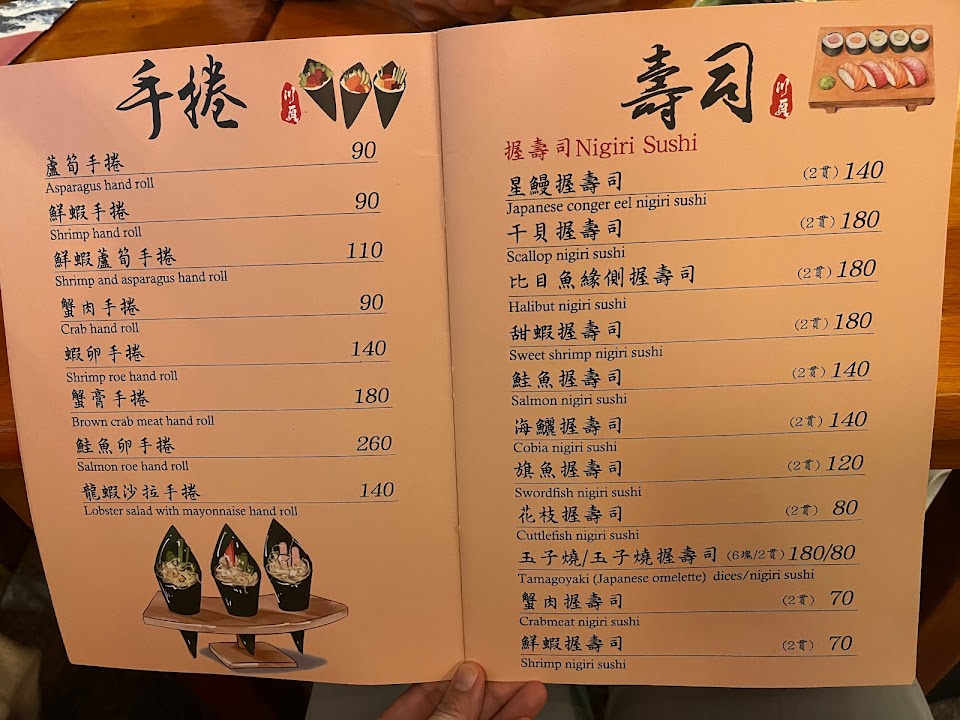 手捲
川頁
蘆筍手捲 90
Asparagus hand roll
鮮蝦手捲 90
Shrimp hand roll
鮮蝦蘆筍手捲 110
Shrimp and asparagus hand roll
蟹肉手捲 90
Crab hand roll
蝦卵手捲 140
Shrimp roe hand roll
蟹膏手捲 180
Brown crab meat hand roll
鮭魚卵手捲 260
Salmon roe hand roll
龍蝦沙拉手捲 140
Lobster salad with mayonnaise hand roll
壽司
握壽司Nigiri Sushi
星鰻握壽司 (2貫) 140
Japanese conger eel nigiri sushi
干貝握壽司 (2貫) 180
Scallop nigiri sushi
比目魚緣側握壽司 (2貫) 180
Halibut nigiri sushi
甜蝦握壽司 (2貫) 180
Sweet shrimp nigiri sushi
鮭魚握壽司 (2貫) 140
Salmon nigiri sushi
海鱺握壽司 (2貫) 140
Cobia nigiri sushi
旗魚握壽司 (2貫) 120
Swordfish nigiri sushi
花枝握壽司 (2貫) 80
Cuttlefish nigiri sushi
玉子燒/玉子燒握壽司 (6塊/2貫) 180/80
Tamagoyaki (Japanese omelette) dices/nigiri sushi
蟹肉握壽司 (2貫) 70
Crabmeat nigiri sushi
鮮蝦握壽司 (2貫) 70
Shrimp nigiri sushi